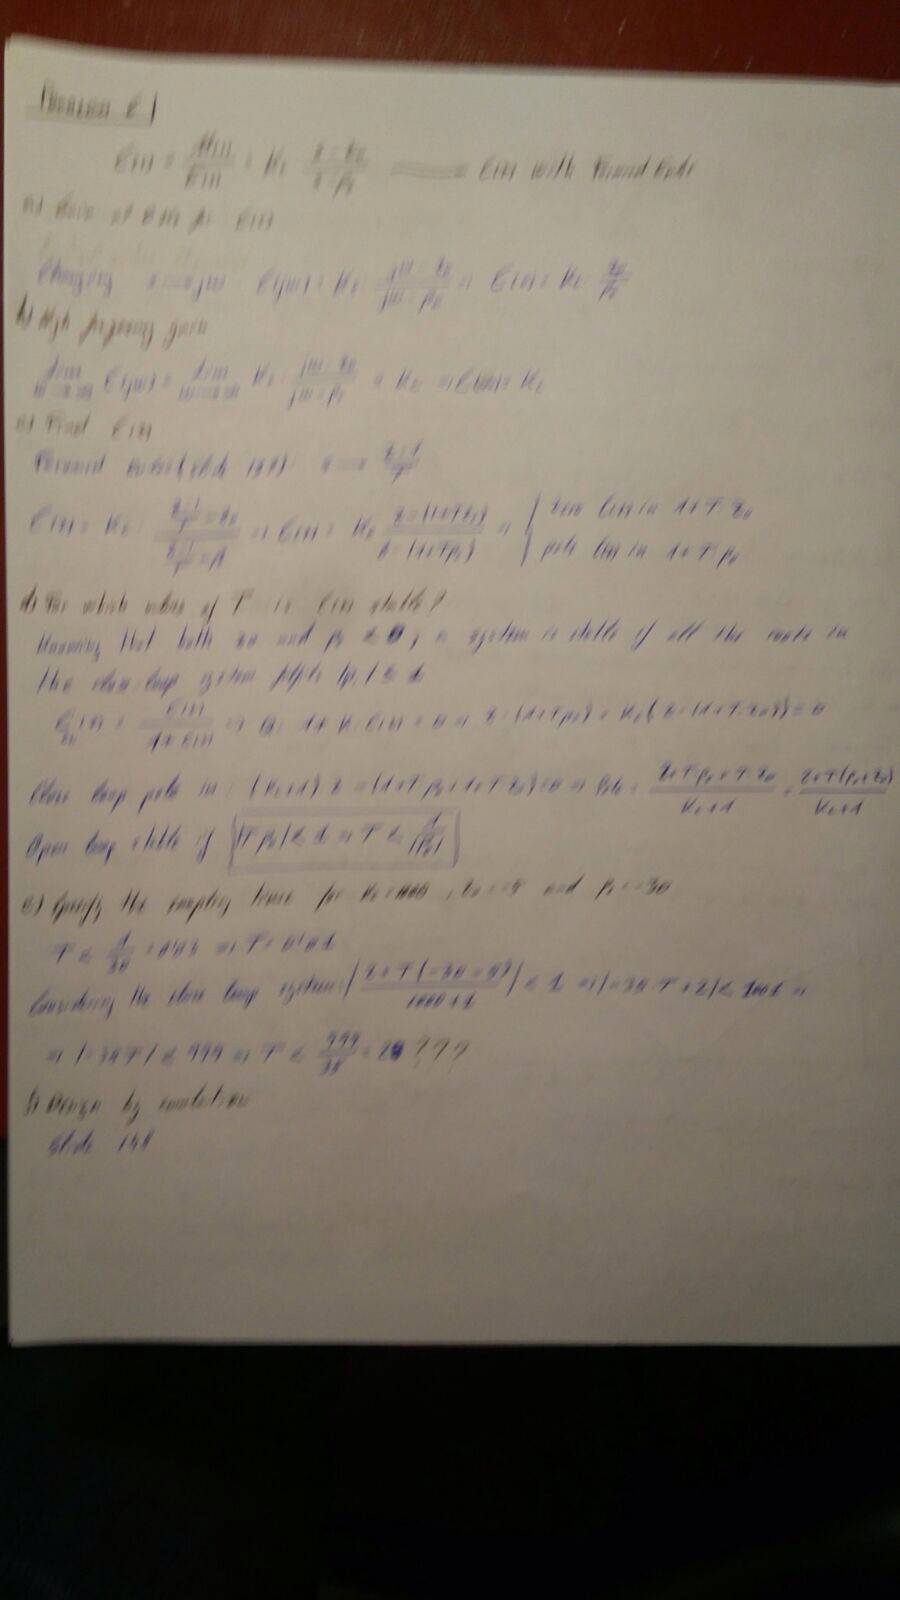 Problem 2
C(s) = M(s)/E(s) = Kc (s - z0)/(s - p0) → C(z) with Forward Euler
a) Gain at low fr C(s)
Changing s → jw C(jw) = Kc (jw - z0)/(jw - p0) ⇒ C(0) = Kc z0/p0
b) High frequency gain
lim w→∞ C(jw) = lim w→∞ Kc (jw - z0)/(jw - p0) = Kc ⇒ C(∞) = Kc
c) Find C(z)
Forward Euler (slide s → (z-1)/T
C(z) = Kc ((z-1)/T - z0)/((z-1)/T - p0) ⇒ C(z) = Kc (z - (1+Tz0))/(z - (1+Tp0)) ⇒ { zero C(z) in 1+T·z0
pole C(z) in 1+T·p0
d) For which values of T is C(z) stable?
Knowing that both z0 and p0 < 0, a system is stable if all the roots in
the close loop system |pi| ≤ 1
C(z)/(1+C(z)) ⇒ 1+K·C(z) = 0 ⇒ z-(1+Tp0) + Kc(z-(1+T·z0)) = 0
Close loop pole in: (Kc+1) z - (1+T·p0+1+T·z0) = 0 ⇒ = (2+T·p0+T·z0)/(Kc+1) = (2+T(p0+z0))/(Kc+1)
Open loop stable if |T·p0| < 1 ⇒ T < 1/|p0|
e) Specify the sampling time for Kc=1000, and p0=-30
T < 1/30 = 0'03 ⇒ T = 0'01
Considering the close loop system: |(2+T(-30 )/(1000+1)| < 1 ⇒ T+2| < 1001 ⇒
⇒ T| < 999 ⇒ T < ???
f) Design by emulation
Slide